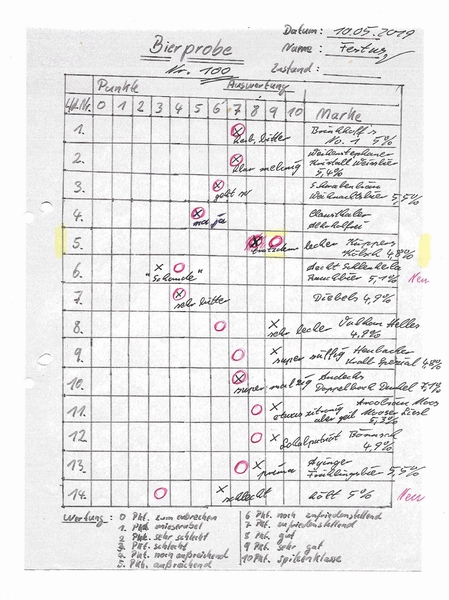 Datum: 10.05.2019
Bierprobe
Name: Festus
Nr. 100
Zustand:
Punkte Auswertung
Lfd.Nr. 0 1 2 3 4 5 6 7 8 9 10 Marke
1. herb, bitter Brinkhoff's No. 1 5%
2. klar Weihenstephaner Kristall Weissbier 5,4%
3. geht so Schwabenbräu Weihnachtsbier 5,5%
4. na ja Clausthaler Alkoholfrei
5. trocken lecker Küppers Kölsch 4,8%
6. "Schencke" Aecht Schlenkerla Rauchbier 5,1% Neu
7. sehr bitter Diebels 4,9%
8. sehr lecker Vulkan Helles 4,9%
9. super süffig Kraft Spezial
10. super malzig Andechs Doppelbock Dunkel 7,1%
11. etwas zitronig aber geil Mooser Liesl 5,3%
12. Lokalpatriot Bönnsch 4,9%
13. prima Ayinger Frühlingsbier 5,5%
14. schlecht 5% Neu
Wertung: 0 Pkt. zum erbrechen
1 Pkt. miserabel
2 Pkt. sehr schlecht
3 Pkt. schlecht
4 Pkt. noch ausreichend
5 Pkt. ausreichend
6 Pkt. noch zufriedenstellend
7 Pkt. zufriedenstellend
8 Pkt. gut
9 Pkt. sehr gut
10 Pkt. spitzenklasse